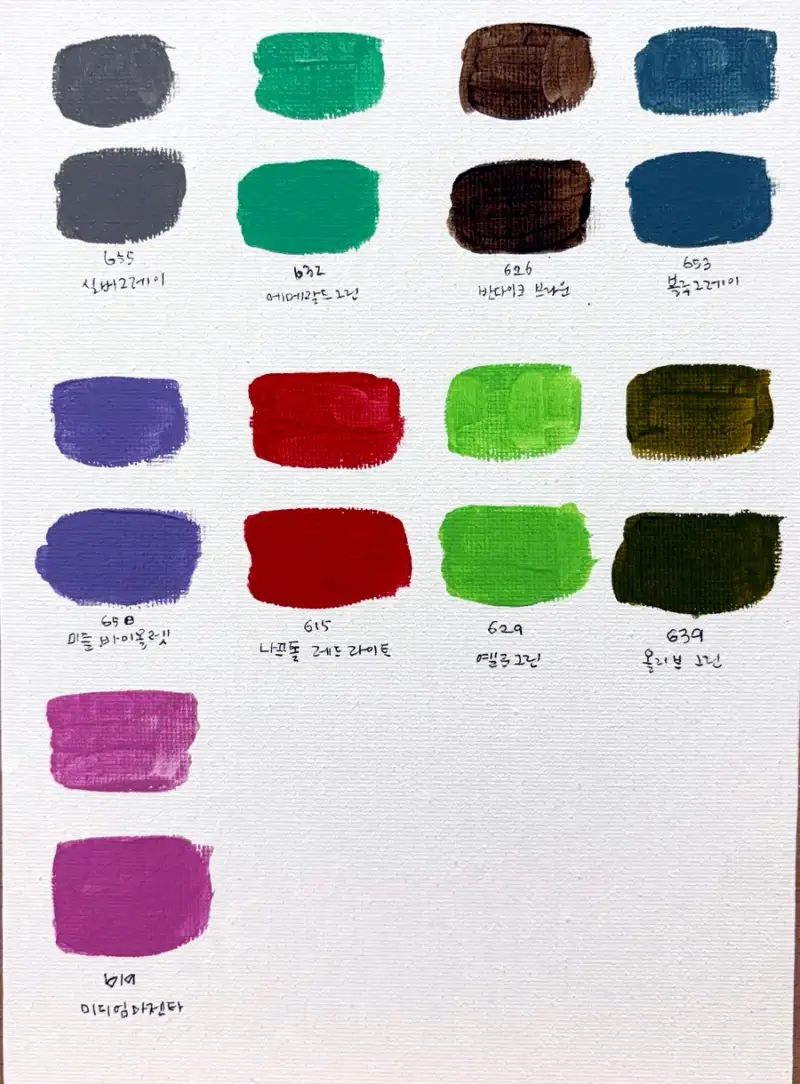 655
실버그레이
632
에메랄드그린
626
반다이크 브라운
653
블루그레이
650
미듐바이올렛
615
나프톨 레드 라이트
629
옐로그린
639
올리브 그린
619
미디엄마젠타